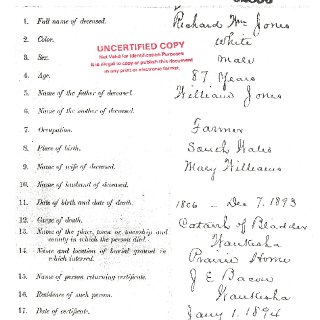 1. Full name of deceased. Richard Wm Jones
2. Color. White
UNCERTIFIED COPY
Not Valid for Identification Purposes
It is illegal to copy or publish this document
in any print or electronic format.
3. Sex. male
4. Age. 87 Years
5. Name of the father of deceased. William Jones
6. Name of the mother of deceased.
7. Occupation. Farmer
8. Place of birth. South Wales
9. Name of wife of deceased. Mary Williams
10. Name of husband of deceased.
11. Date of birth and date of death. 1806 - Dec 7. 1893
12. Cause of death. Catarrh of Bladder
13. Name of the place, town or township and
county in which the person died. Waukesha
14. Name and location of burial ground in
which interred. Prairie Home
15. Name of person returning certificate. J E Bacon
16. Residence of such person. Waukesha
17. Date of certificate. Jany 1. 1894